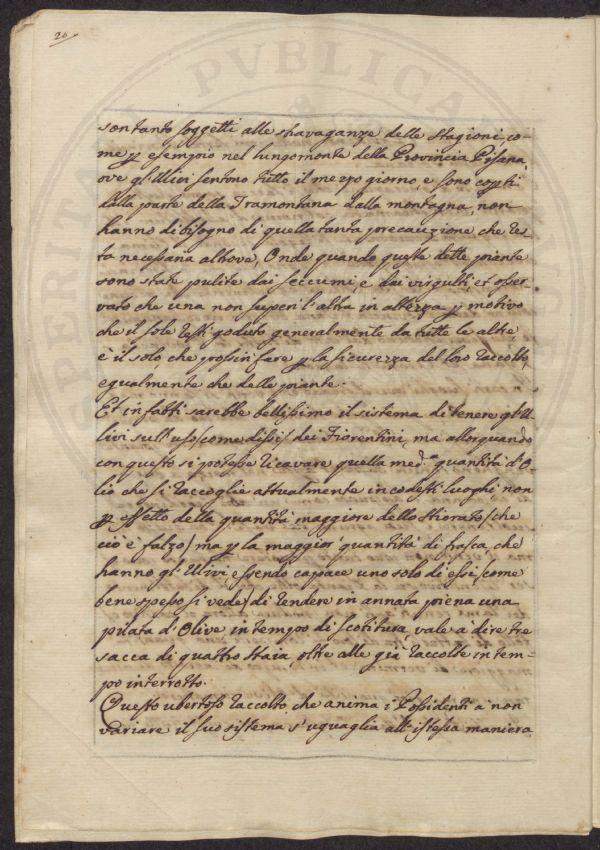 26
PVBLICA
son tanto soggetti alle stravaganze delle Stagioni, co-
me p esempio nel lungomonte della Provincia Pisana,
ove gl'Ulivi sentono tutto il mezzo giorno, e sono coperti
dalla parte della Tramontana dalla montagna, non
hanno di bisogno di quella tanta precauzione che re
ta necessaria altrove, Onde quando queste dette piante
sono state pulite dai seccumi e dai virgulti, et osser-
vato che una non superi l'altra in altezza p motivo
che il sole resti goduto generalmente da tutte le altre,
è il solo che possin fare p la sicurezza del loro raccolto,
egualmente che delle piante.
Et in fatti sarebbe bellissimo il sistema di tenere gl'U
livi sull'uso /come dissi/ dei Fiorentini, ma allorquando
con questo si potesse ricavare quella med.ª quantità d'O
lio che si raccoglie attualmente in codesti luoghi non
p effetto della quantità maggiore dello Stiorato /che
ciò è falzo/ ma p la maggior quantità di frasca, che
hanno gl'Ulivi essendo capace uno solo di essi /come
bene spesso si vede/ di rendere in annata piena una
pilata d'Olive in tempo di scotitura, vale a dire tre
sacca di quattro staia, oltre alle già raccolte in tem=
po interrotto.
Questo ubertoso raccolto che anima i Possidenti a non
variare il suo sistema s'uguaglia all'istessa maniera